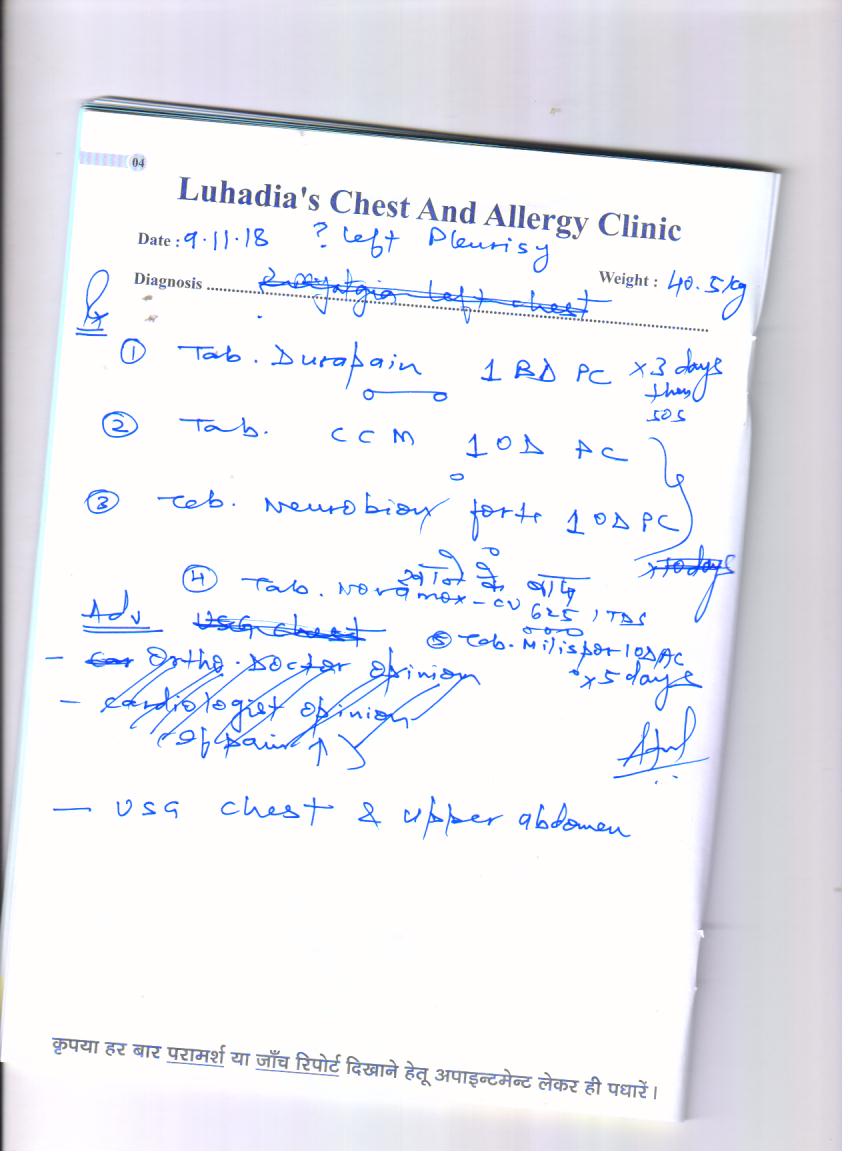 04
Luhadia's Chest And Allergy Clinic
Date : 9.11.18 ? Left Pleurisy
Diagnosis ........ ? Myalgia left chest Weight : 40.5 kg
Rx
① Tab. Durapain 1 BD PC x 3 days
then
sos
② Tab. CCM 1 OD AC
③ Tab. Neurobion forte 1 OD PC
x 10 days
खाने के बाद
④ Tab. Novamox-CV 625 1 TDS
Adv USG chest ⑤ Tab. Milispor 1 OD AC
x 5 days
- Ortho. Doctor opinion
- Cardiologist opinion
(If pain ↑)
- USG chest & upper abdomen
कृपया हर बार परामर्श या जाँच रिपोर्ट दिखाने हेतू अपाइन्टमेन्ट लेकर ही पधारें।